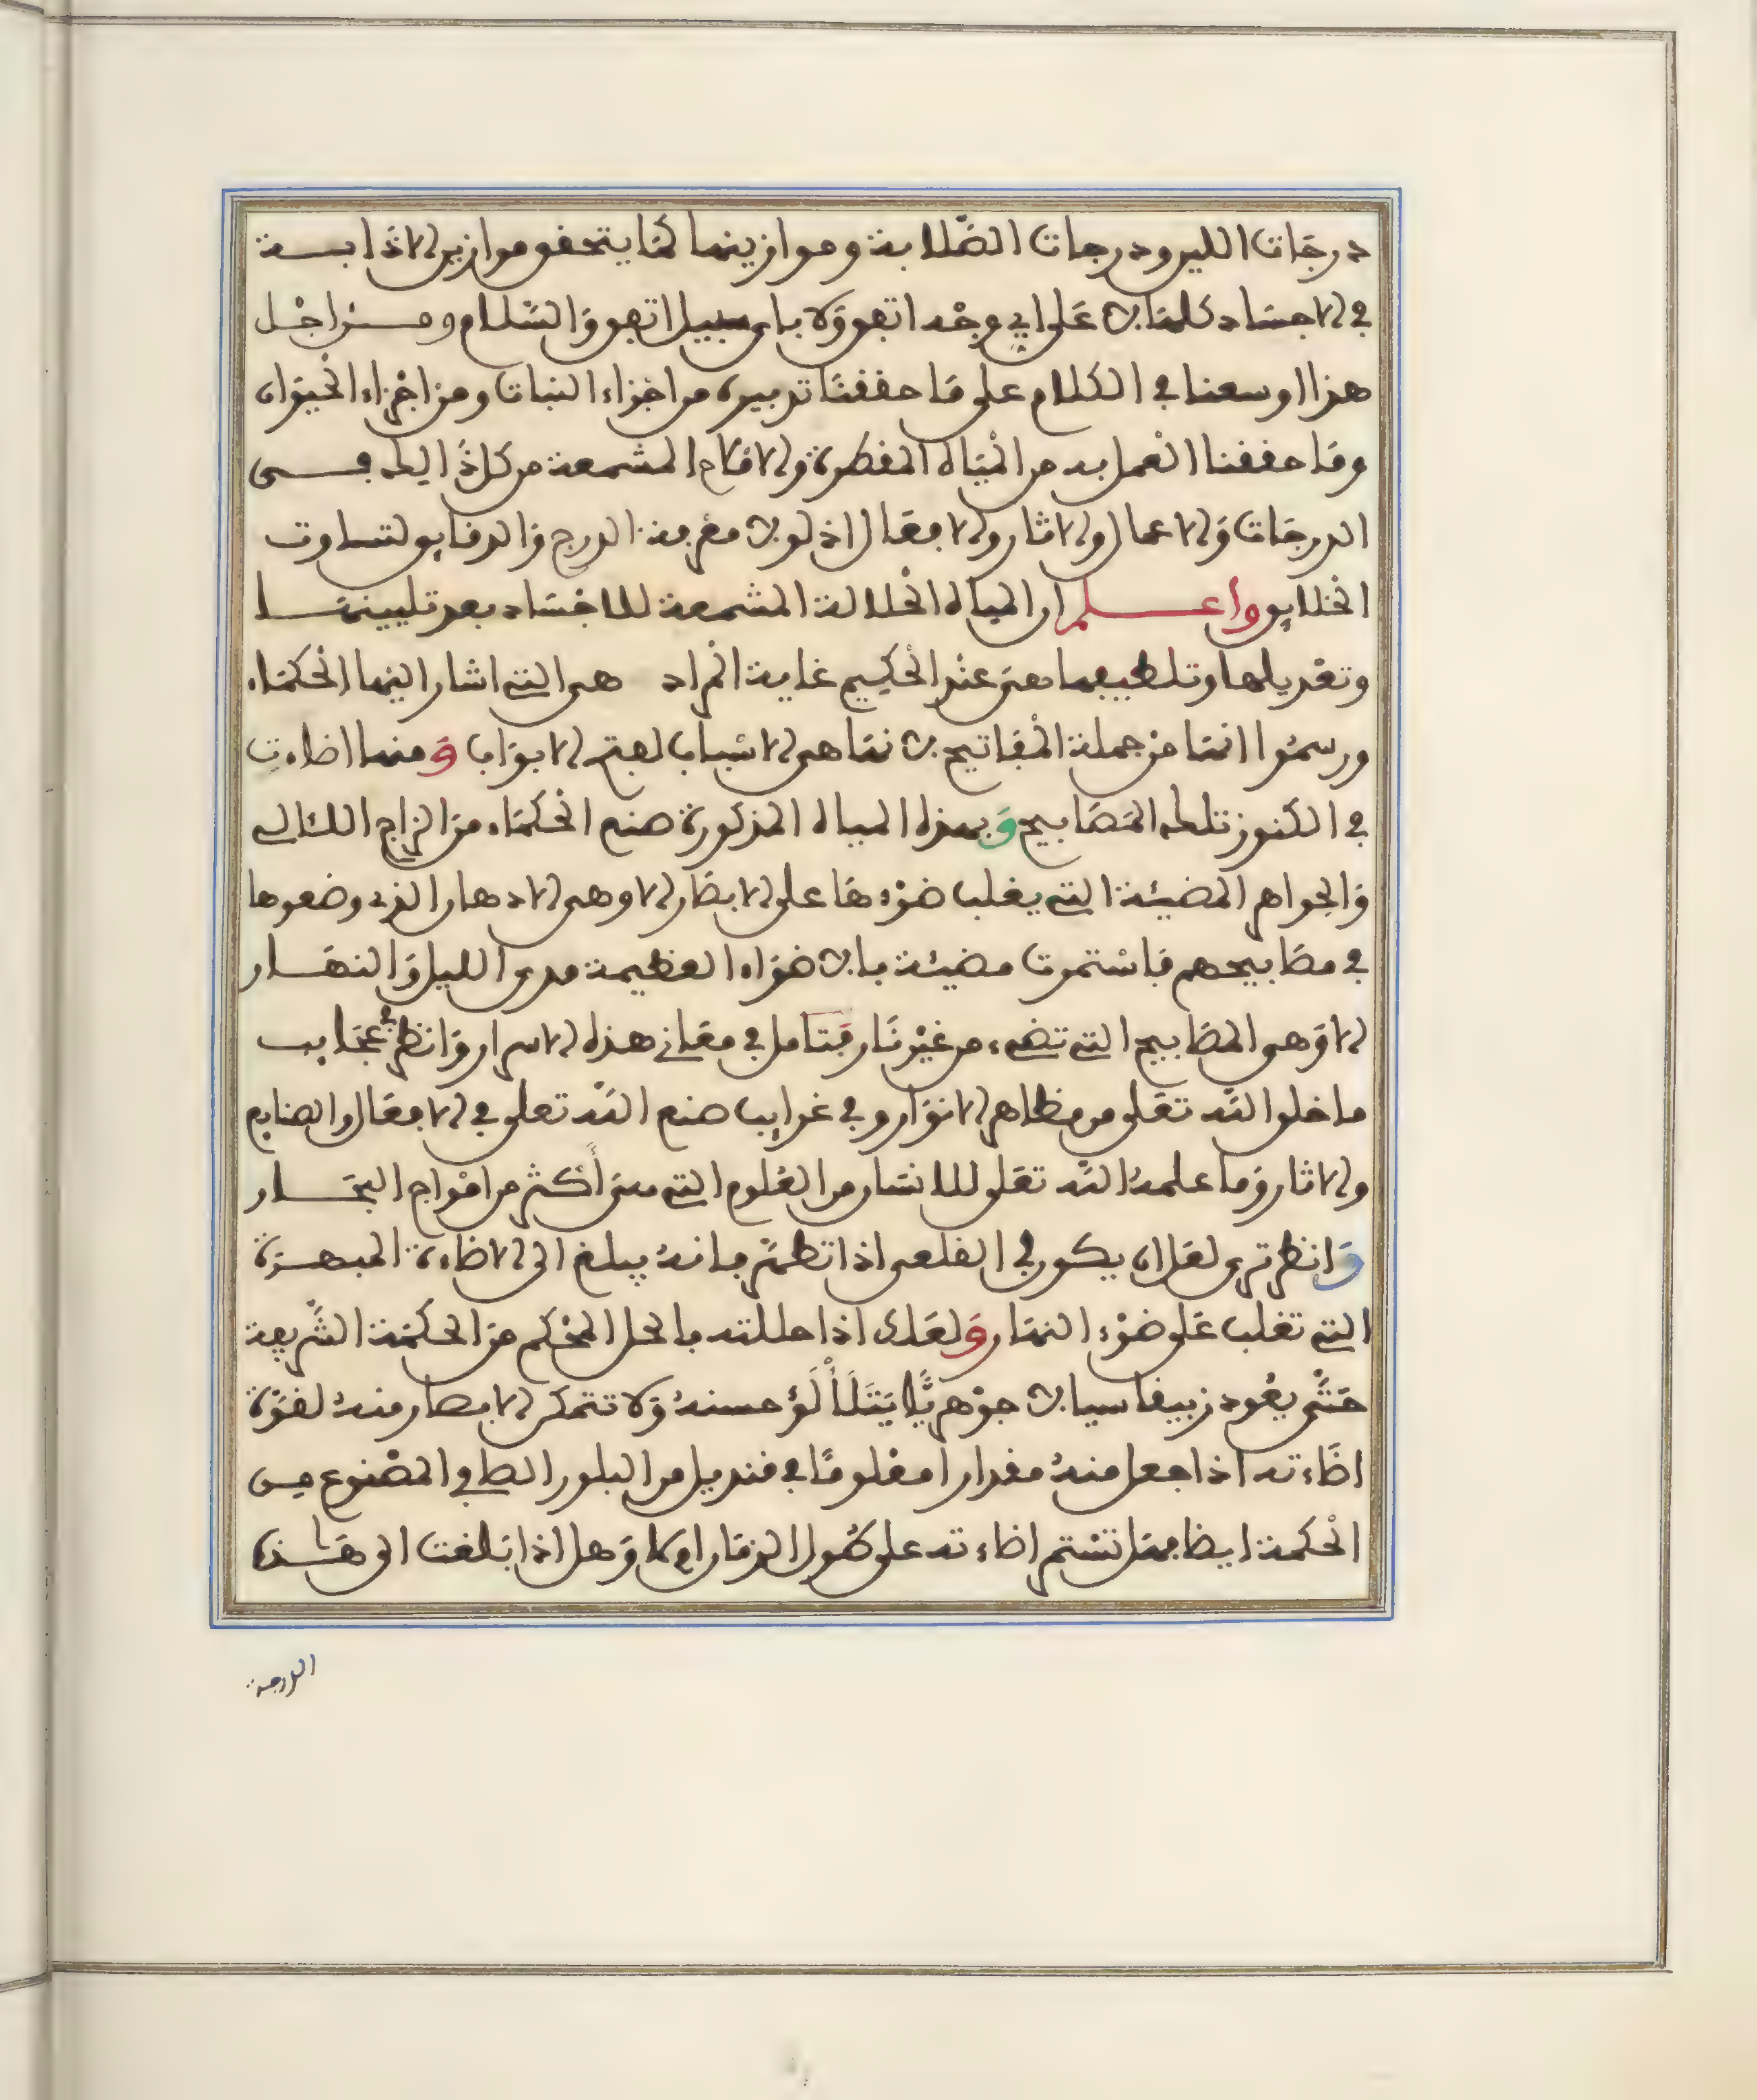 درجات اللين ودرجات الصلابة وموازينها كما يتحقق موازين الاذابــة
في الاجساد كلها لا على اي وجه اتفق ولا باي سبيل اتفق والسلام ومــن اجل
هذا اوسعنا في الكلام على ما حققنا تدبيره من اجزاء النبات ومن اجزاء الحيوان
وما حققنا العمل به من المياه المقطرة والاملاح المشمعة من كل ذلك فــي
الدرجات والاعمال والاثار والافعال اذ لولا معرفة الدرج والدقايق لتساوت
الخلايق واعــلم ان المياه الحلالة المشمعة للاجساد بعد تليينهــا
وتعديلها وتلطيفها هي عند الحكيم غاية المراد هي التي اشار اليها الحكماء
ورسموا انها من جملة المفاتيح لانها هي الاسباب لفتح الابواب ومنها اضاءت
في الكنوز تلك المصابيح وبهذه المياه المذكورة صنع الحكماء من الزاج اللئالي
والجواهر المضيئة التي يغلب ضوءها على الابصار الا وهي الادهان الذي وضعوها
في مصابيحهم فاستمرت مضيئة بالاضواء العظيمة مدى الليل والنهــار
الا وهي المصابيح التي تضيء من غير نار فتامل في معاني هذه الاسرار وانظر في عجايب
ما خلق الله تعلى من مظاهر الانوار وفي غرايب صنع الله تعلى في الافعال والصنايع
والاثار وما علمه الله تعلى للانسان من العلوم التي هي أكثر من امواج البحــار
وانظر ترى لعل ان يكون في القلعي اذا تطهر فانه يبلغ الى الاضاءة المبهــرة
التي تغلب على ضوء النهار ولعلك اذا حللته بالحل المحكم من الحكمة الشريفة
حتى يعود زيبقا سيالا جوهريًّا يَتَلَأْلَؤ حسنه ولا تتمكن الابصار منه لقوة
اضاءته اذا جعل منه مقدارا معلوما في قنديل من البلور الصافي المصنوع من
الحكمة ايضا فهل تستمر اضاءته على طول الزمان ام لا وهل اذا بلغت الى هــذه
الدرجة